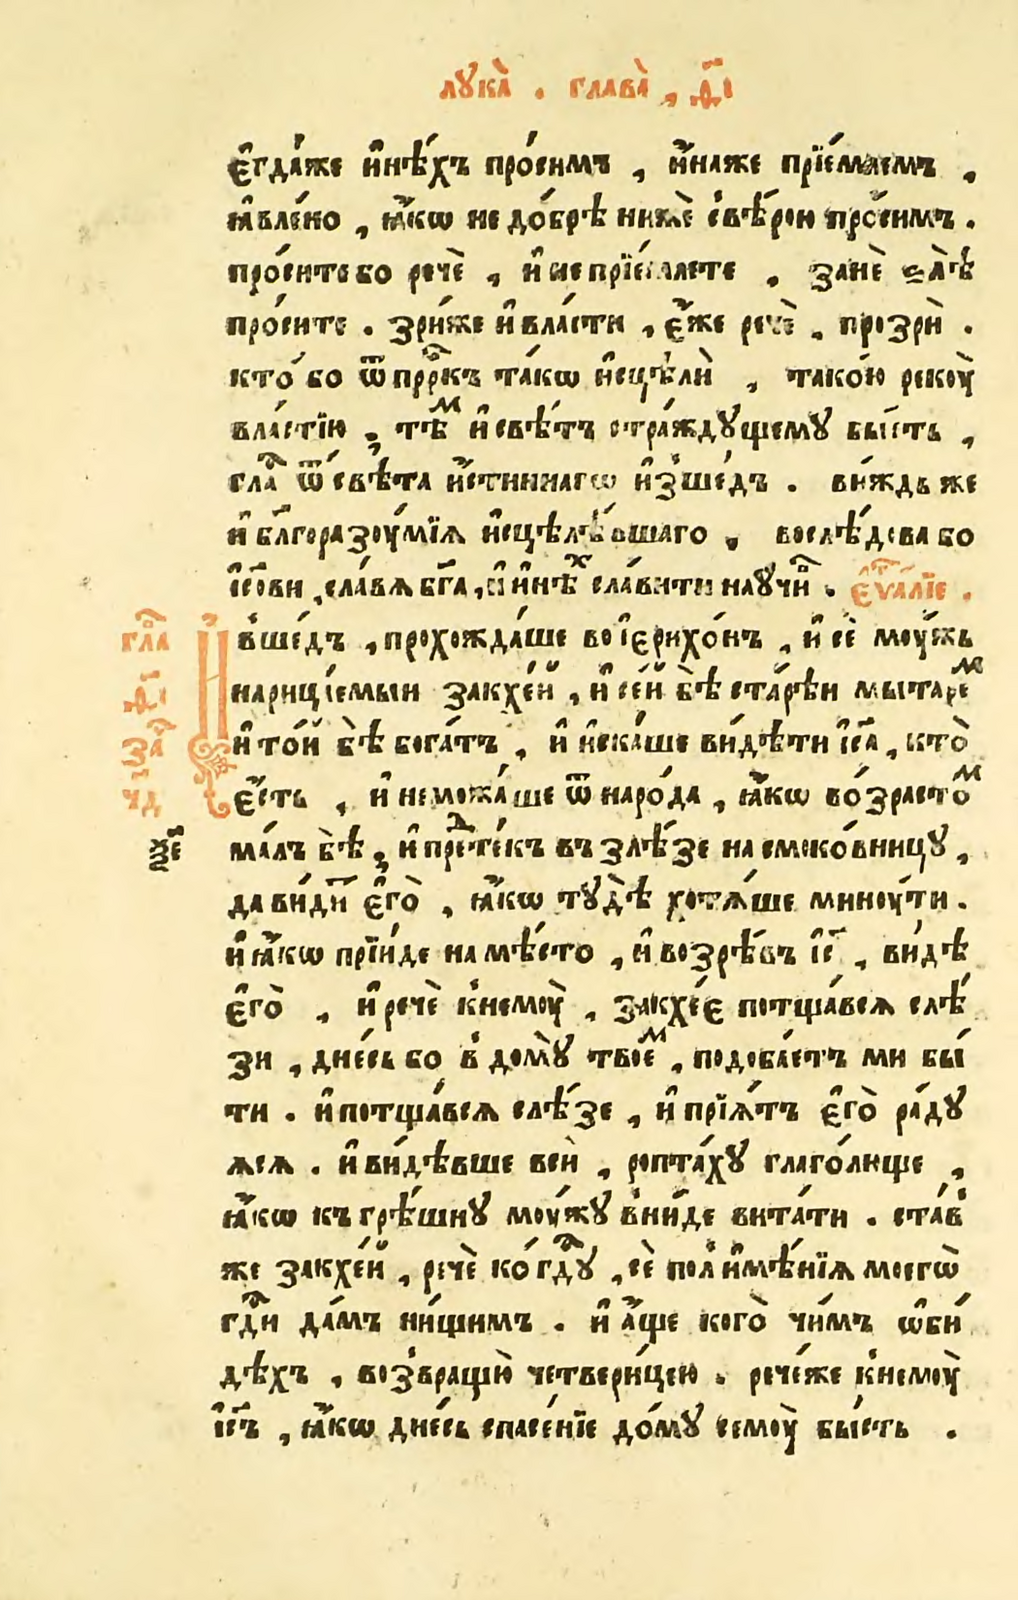 лꙋка̀ . глава̀ , ѳ҃і
є҆гда́же и҆нѣ́хъ про́симъ , и҆наже прїе́млемъ ,
ꙗ҆вле́но , ꙗ҆́кѡ не до́брѣ нижѐ свѣ́рою про́симъ .
про́ситебо речѐ , и҆ не прїе́млете , занѐ ѕлѣ̀
про́сите . зри́же и҆ вла́сти , є҆́же речѐ , прозрѝ .
кто́ бо ѿ прⷪ҇ркъ та́кѡ и҆сцѣлѝ , тако́ю рекоу̀
вла́стїю , тѣⷨ и҆ свѣ́тъ стра́ждꙋщемꙋ бы́сть ,
гл҃а ѿ свѣ́та и҆́стиннагѡ и҆зше́дъ . ви́ждь же
и҆ бл҃горазоу́мїѧ и҆сцѣлѣ́вшаго , вослѣ́дова бо
і҆с҃ови , сла́вѧ бг҃а , и҆ и҆нѣⷯ сла́вити наꙋчѝ . є҆ѵⷢ҇а́лїе .
гл҃а И҆ в̾ше́дъ , прохожда́ше во і҆ерихо́нъ , и҆ сѐ моу́жь
ѳ҃і нарица́емыи закхе́й , и҆ се́й бѣ̀ старѣ́и мытареⷨ
за҃ и҆ то́й бѣ̀ бога́тъ , и҆ и҆ска́ше ви́дѣти і҆с҃а , кто̀
ч҃д є҆́сть , и҆ неможа́ше ѿ наро́да , ꙗ҆́кѡ во́зрастоⷨ
ма́лъ бѣ̀ , и҆ преⷣте́къ възлѣ́зе на смоко́вницꙋ ,
да ви́дит є҆го̀ , ꙗ҆́кѡ тꙋдѣ̀ хотѧ́ше миноу́ти .
и҆ ꙗ҆́кѡ прїи́де на мѣ́сто , и҆ возрѣ́въ і҆с҃ , ви́дѣ
є҆го̀ , и҆ речѐ к̾немоу̀ , закхе́є потща́всѧ слѣ́
зи , дне́сь бо в̾ домꙋ̀ твоеⷨ , подоба́етъ ми бы́
ти . и҆ потща́всѧ слѣ́зе , и҆ прїѧ́тъ є҆го̀ ра́дꙋ
ѧсѧ . и҆ ви́дѣвше всѝ , ропта́хꙋ глаго́люще ,
ꙗ҆́кѡ къ грѣ́шнꙋ моу́жꙋ в̾ни́де вита́ти . ста́в̾
же закхе́й , речѐ ко гдⷭ҇ꙋ , сѐ пол̾ и҆мѣ́нїѧ моегѡ̀
гдⷭ҇и да́мъ ни́щимъ . и҆ а҆́ще кого̀ чи́мъ ѡ҆би́
дѣхъ , воз̾вращꙋ̀ четвери́цею . рече́же к̾немоу̀
і҆с҃ъ , ꙗ҆́кѡ дне́сь спасе́нїе до́мꙋ семоу̀ бы́сть .